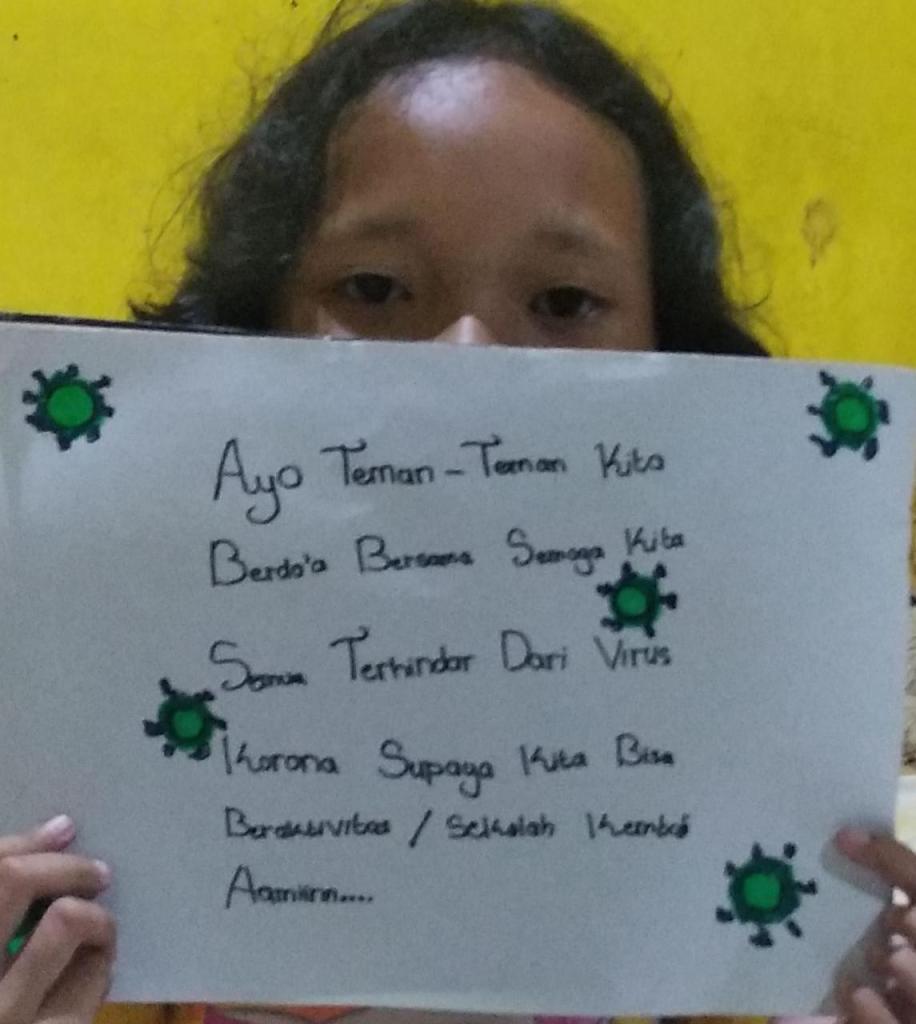 Ayo Teman-Teman Kita
Berdo'a Bersama Semoga Kita
Semua Terhindar Dari Virus
Korona Supaya Kita Bisa
Beraktivitas / Sekolah Kembali
Aamiinn....